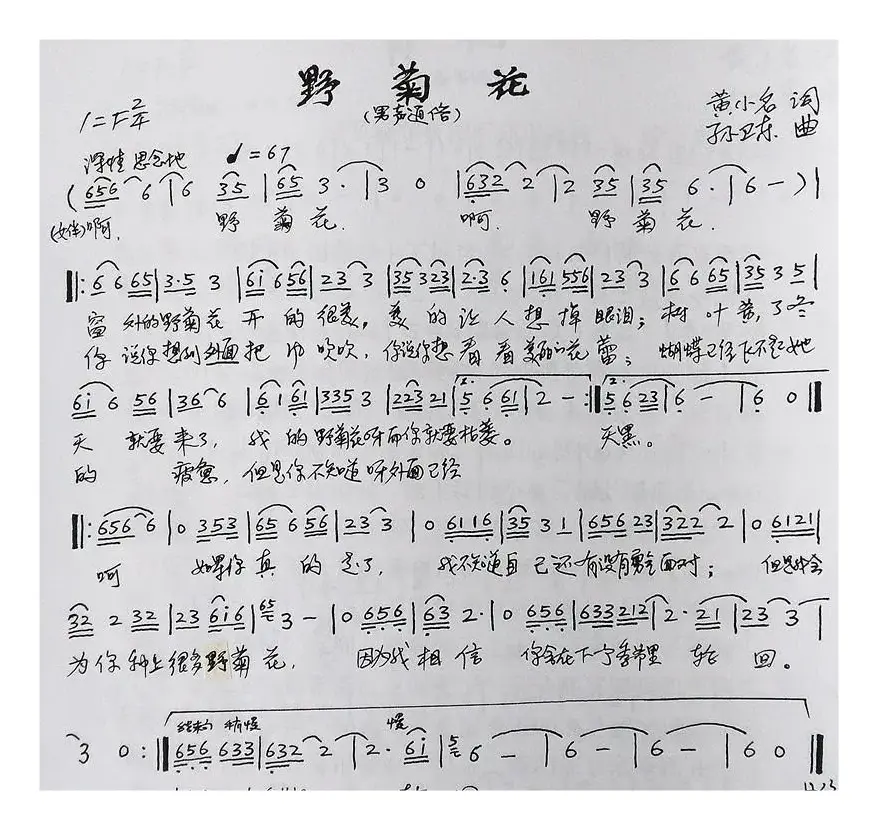 野菊花
(男声通俗)
1=F 2/4
黄小名 词
孙卫东 曲
深情思念地 ♩=67
(656 6 | 6 35 | 65 3· | 3 0 | 632 2 | 2 35 | 35 6· | 6 — ) |
(女伴)啊. 野菊花. 啊. 野菊花.
‖: 6 6 65 | 3·5 3 | 6i 656 | 23 3 | 35 323 | 2·3 6 | 161 556 | 23 3 | 6 6 65 | 35 3 5 |
窗外的野菊花开的很美, 美的让人想掉眼泪; 树叶黄了冬
你说你想到外面把巾吹吹, 你说你想看看美丽的花蕾; 蝴蝶已经飞不起她
6i 6 56 | 36 6 | 6 1 61 | 335 3 | 2233 21 | 1. 5 6 61 | 2 — :‖ 2. 5 6 23 | 6 — | 6 0 ‖
天就要来了, 我的野菊花呀而你就要枯萎。 天黑。
的疲惫, 但是你不知道呀外面已经
‖: 656 6 | 0 353 | 65 6 56 | 23 3 | 0 6116 | 35 3 1 | 656 23 | 322 2 | 0 6121 |
啊 如果你真的走了, 我不知道自己还有没有勇气面对; 但是我会
32 2 32 | 23 6i6 | 65 3 — | 0 656 | 63 2· | 0 656 | 633 212 | 2· 21 | 23 3 |
为你种上很多野菊花, 因为我相信 你会在下个季节里轮回。
结束句 稍慢 慢
3 0 :‖ 656 633 | 632 2 | 2· 6i | 5 6 — | 6 — | 6 — | 6 0 ‖